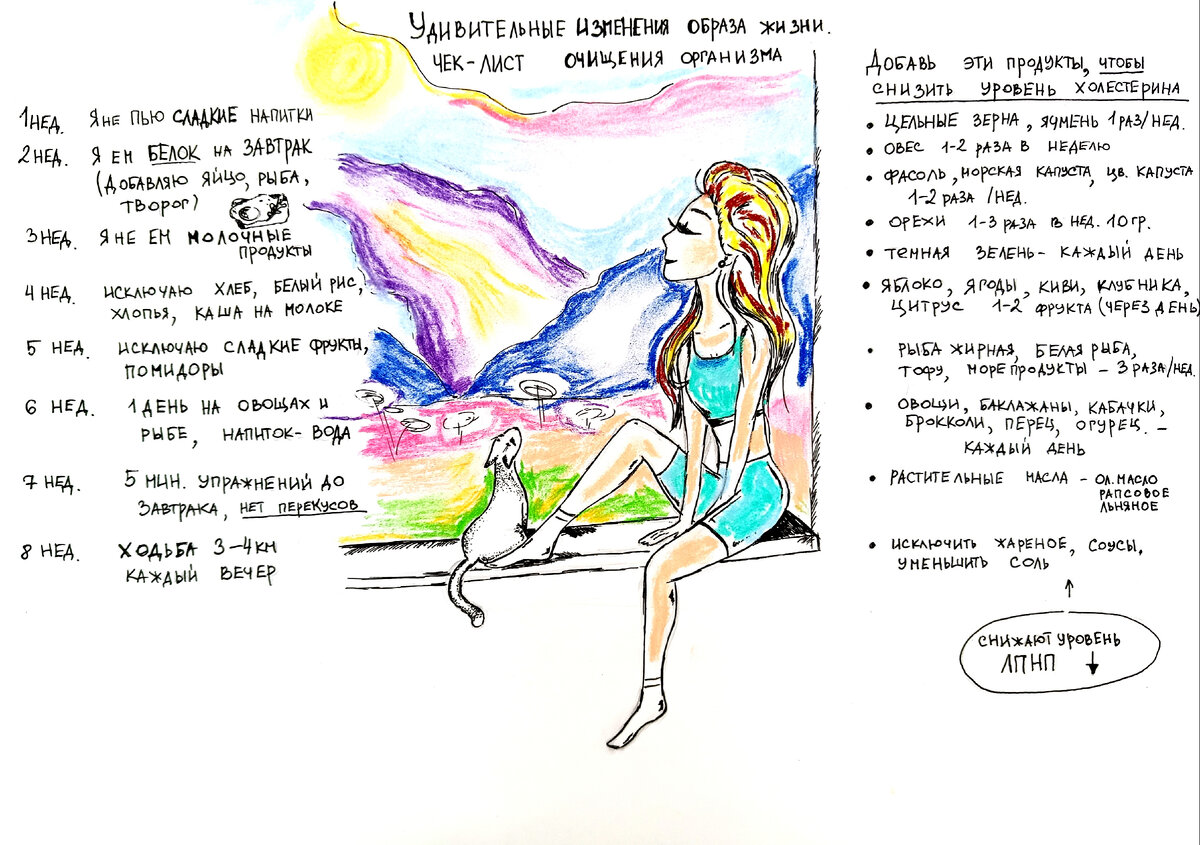 Удивительные изменения образа жизни.
чек-лист очищения организма
1 нед. Я не пью сладкие напитки
2 нед. Я ем белок на завтрак
(добавляю яйцо, рыба,
творог)
3 нед. Я не ем молочные
продукты
4 нед. исключаю хлеб, белый рис,
хлопья, каша на молоке
5 нед. исключаю сладкие фрукты,
помидоры
6 нед. 1 день на овощах и
рыбе, напиток - вода
7 нед. 5 мин. упражнений до
завтрака, нет перекусов
8 нед. ходьба 3-4 км
каждый вечер
Добавь эти продукты, чтобы
снизить уровень холестерина
• цельные зерна, ячмень 1 раз/нед.
• овес 1-2 раза в неделю
• фасоль, морская капуста, цв. капуста
1-2 раза /нед.
• орехи 1-3 раза в нед. 10 гр.
• темная зелень - каждый день
• яблоко, ягоды, киви, клубника,
цитрус 1-2 фрукта (через день)
• рыба жирная, белая рыба,
тофу, морепродукты - 3 раза/нед.
• овощи, баклажаны, кабачки,
брокколи, перец, огурец. -
каждый день
• растительные масла - ол. масло
рапсовое
льняное
• исключить жареное, соусы,
уменьшить соль
↑
снижают уровень
ЛПНП ↓